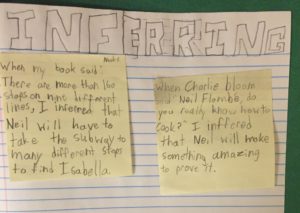 INFERRING
When my book said:
There are more than 160
stops on nine different
lines, I inferred that
Neil will have to
take the subway to
many different stops
to find Isabella.
When Charlie bloom
said "Neil Flambé, do
you really know how to
cook?" I inffered
that Neil will make
something amazing
to prove it.